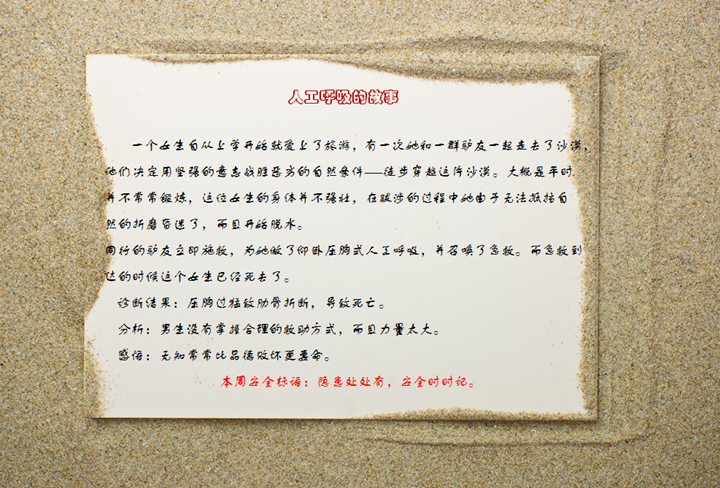 人工呼吸的故事
一个女生自从上学开始就爱上了旅游，有一次她和一群驴友一起走去了沙漠，
他们决定用坚强的意志战胜恶劣的自然条件——徒步穿越这片沙漠。大概是平时
并不常常锻炼，这位女生的身体并不强壮，在跋涉的过程中她由于无法抵挡自
然的折磨昏迷了，而且开始脱水。
同行的驴友立即施救，为她做了仰卧压胸式人工呼吸，并召唤了急救。而急救到
达的时候这个女生已经死去了。
诊断结果：压胸过猛致肋骨折断，导致死亡。
分析：男生没有掌握合理的救助方式，而且力量太大。
感悟：无知常常比品德败坏更要命。
本周安全标语：隐患处处有，安全时时记。